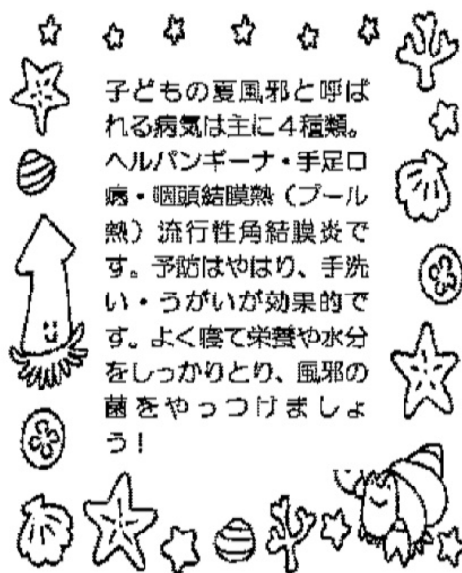 子どもの夏風邪と呼ば
れる病気は主に４種類。
ヘルパンギーナ・手足口
病・咽頭結膜熱（プール
熱）流行性角結膜炎で
す。予防はやはり、手洗
い・うがいが効果的で
す。よく寝て栄養や水分
をしっかりとり、風邪の
菌をやっつけましょ
う！